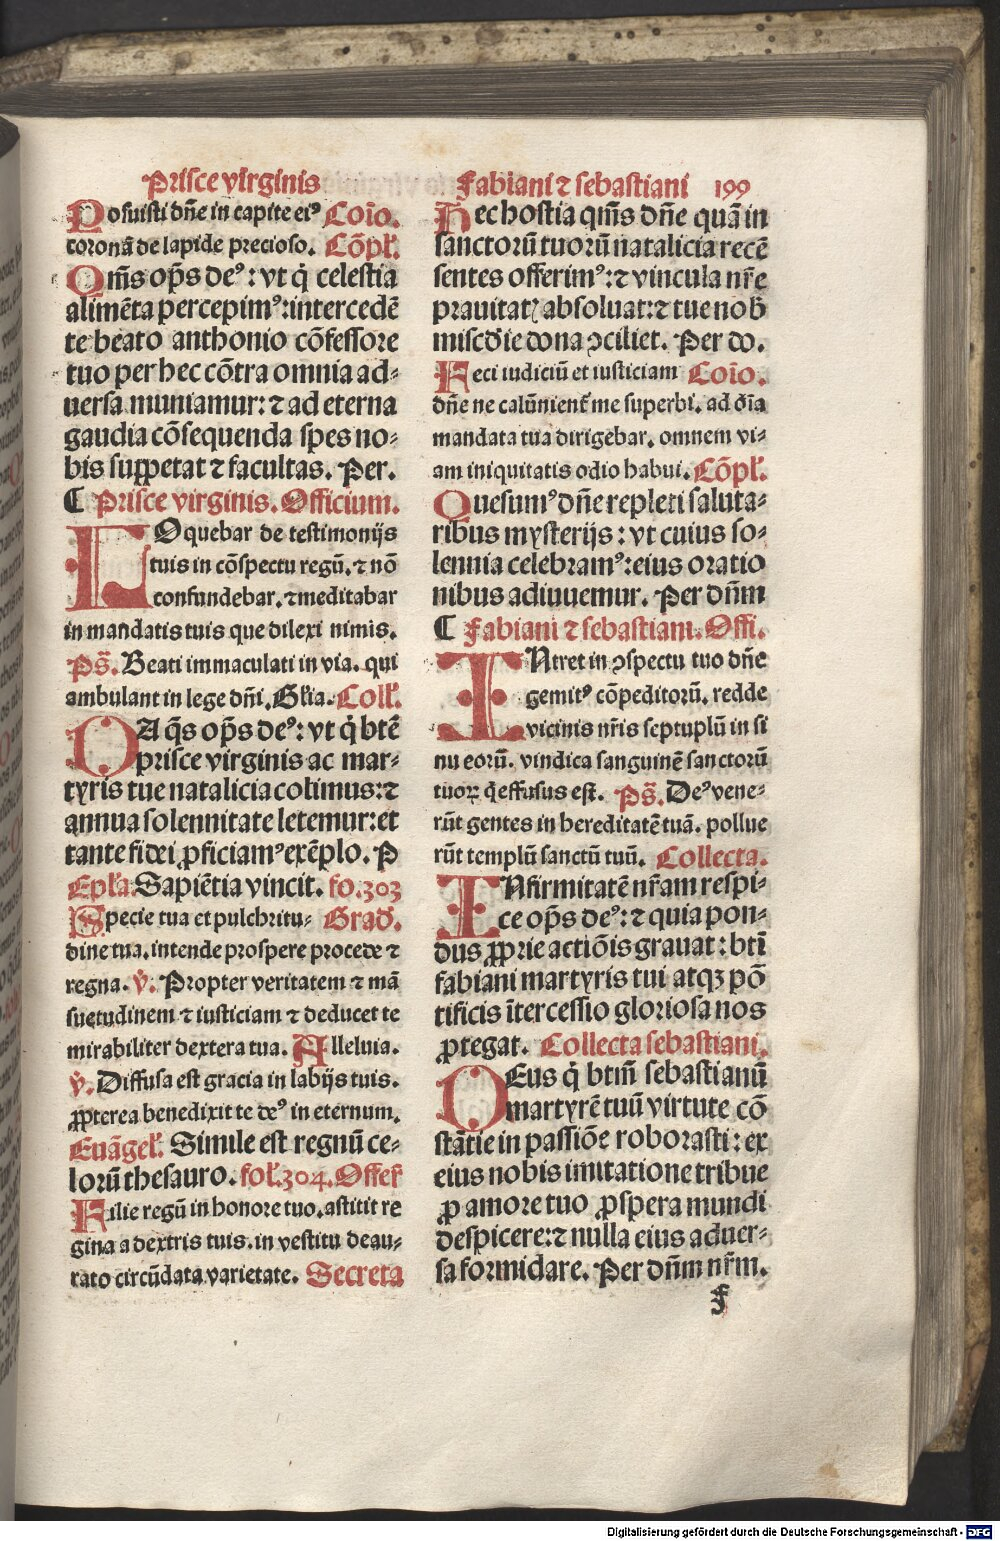 Prisce virginis
Posuisti dñe in capite eiꝰ Coı̄o.
coronā de lapide precioso. Cōpł.
Qm̄s op̄s deꝰ: vt q̇ celestia
alimēta percepimꝰ: intercedē
te beato anthonio cōfessore
tuo per hec cōtra omnia ad⸗
uersa muniamur: ⁊ ad eterna
gaudia cōsequenda spes no⸗
bis suppetat ⁊ facultas. Per.
¶ Prisce virginis. Officium.
LOquebar de testimonijs
tuis in cōspectu regū. ⁊ nō
confundebar. ⁊ meditabar
in mandatis tuis que dilexi nimis.
Ps̄. Beati immaculati in via. qui
ambulant in lege dñi. Głia. Coll.
DA q̄s op̄s deꝰ: vt q̇ btē
prisce virginis ac mar⸗
tyris tue natalicia colimus: ⁊
annua solennitate letemur: et
tante fidei ꝓficiamꝰ exēplo. P
Epła. Sapiētia vincit. fo. 303
Specie tua et pulchritu⸗ Grad.
dine tua. intende prospere procede ⁊
regna. ℣. Propter veritatem ⁊ mā
suetudinem ⁊ iusticiam ⁊ deducet te
mirabiliter dextera tua. Alleluia.
℣. Diffusa est gracia in labijs tuis.
ꝓpterea benedixit te deꝰ in eternum.
Euāgeł. Simile est regnū ce⸗
lorū thesauro. foł. 304. Offer̄
Filie regū in honore tuo. astitit re
gina a dextris tuis. in vestitu deau⸗
rato circūdata varietate. Secreta
Fabiani ⁊ sebastiani 199
Hec hostia qm̄s dñe quā in
sanctorū tuorū natalicia recē
sentes offerimꝰ: ⁊ vincula nr̄e
prauitatꝭ absoluat: ⁊ tue nob̄
misc̄die dona ↄciliet. Per do.
Feci iudiciū et iusticiam Coı̄o.
dñe ne calūnient̄ me superbi. ad oı̄a
mandata tua dirigebar. omnem vi⸗
am iniquitatis odio habui. Cōpł.
Quesumꝰ dñe repleti saluta⸗
ribus mysterijs: vt cuius so⸗
lennia celebramꝰ: eius oratio
nibus adiuuemur. Per dñm
¶ Fabiani ⁊ sebastiani. Offi.
INtret in ↄspectu tuo dñe
gemitꝰ cōpeditorū. redde
vicinis nr̄is septuplū in si
nu eorū. vindica sanguinē sanctorū
tuoꝝ q̇ effusus est. Ps̄. Deꝰ vene⸗
rūt gentes in hereditatē tuā. pollue
rūt templū sanctū tuū. Collecta.
INfirmitatē nr̄am respi⸗
ce op̄s deꝰ: ⁊ quia pon⸗
dus ꝓprie actiōis grauat: btī
fabiani martyris tui atqꝫ pō
tificis ītercessio gloriosa nos
ꝓtegat. Collecta sebastiani.
DEus q̇ btm̄ sebastianū
martyrē tuū virtute cō
stātie in passiōe roborasti: ex
eius nobis imitatione tribue
ꝓ amore tuo ꝓspera mundi
despicere: ⁊ nulla eius aduer⸗
sa formidare. Per dñm nr̄m.
Digitalisierung gefördert durch die Deutsche Forschungsgemeinschaft - DFG